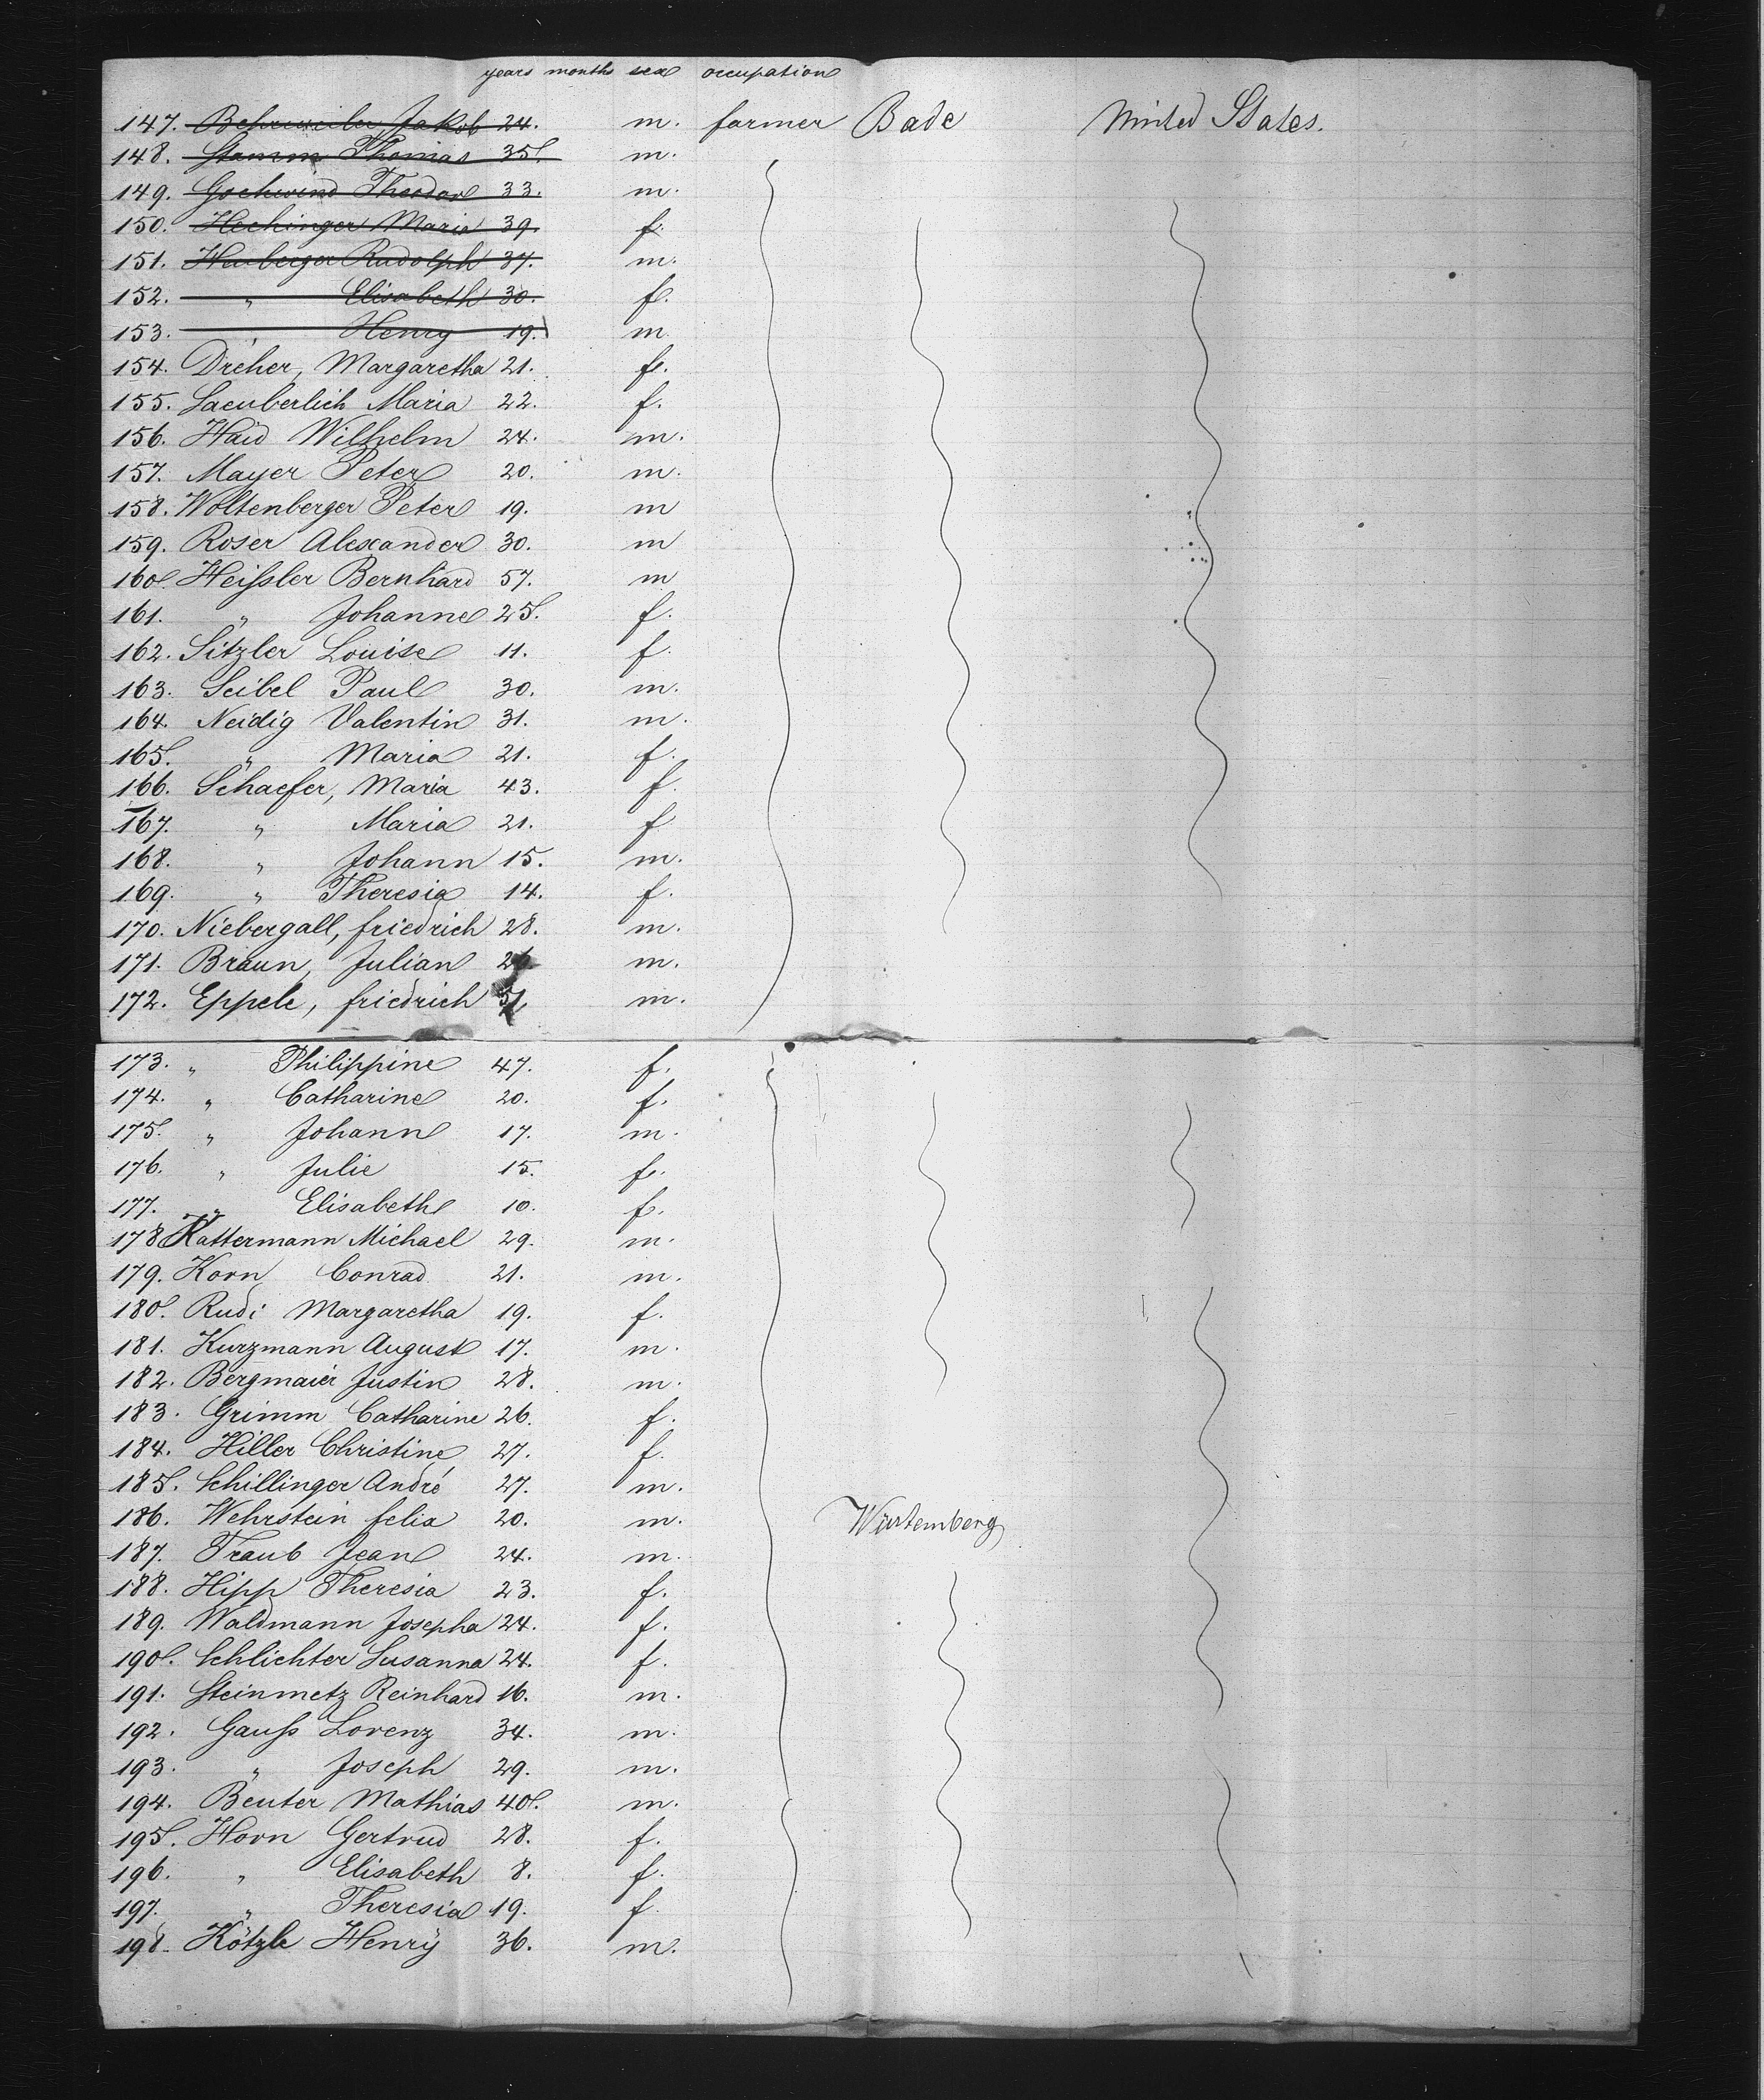 years months sex occupation
147. Jakob 24. m. farmer Bade United States.
148. Stamm Thomas 35. m.
149. Gschwend Theodor 33. m.
150. Hechinger Maria 39. f.
151. Heuberger Rudolph 37. m.
152. " Elisabeth 30. f.
153. " Henry 19. m
154. Dreher, Margaretha 21. f.
155. Laeuberlich Maria 22. f.
156. Haid Wilhelm 24. m.
157. Mayer Peter 20. m.
158. Woltenberger Peter 19. m
159. Roser Alexander 30. m
160. Heissler Bernhard 57. m
161. " Johanne 25. f.
162. Sitzler Louise 11. f.
163. Seibel Paul 30. m.
164. Neidig Valentin 31. m.
165. " Maria 21. f.
166. Schaefer, Maria 43. f.
167. " Maria 21. f.
168. " Johann 15. m.
169. " Theresia 14. f.
170. Niebergall, friedrich 28. m.
171. Braun, Julian m.
172. Eppele, friedrich m.
173. " Philippine 47. f.
174. " Catharine 20. f.
175. " Johann 17. m.
176. " Julie 15. f.
177. " Elisabeth 10. f.
178 Kattermann Michael 29. m.
179. Korn Conrad 21. m.
180. Rudi Margaretha 19. f.
181. Kurzmann August 17. m.
182. Bergmaier Justin 28. m.
183. Grimm Catharine 26. f.
184. Hiller Christine 27. f.
185. Schillinger André 27. m.
186. Wehrstein felix 20. m. Würtemberg
187. Traub Jean 24. m.
188. Hipp Theresia 23. f.
189. Waldmann Josepha 24. f.
190. Schlichter Susanna 24. f.
191. Steinmetz Reinhard 16. m.
192. Gauss Lorenz 34. m.
193. " Joseph 29. m.
194. Beuter Mathias 40. m.
195. Horn Gertrud 28. f.
196. " Elisabeth 8. f.
197. " Theresia 19. f.
198. Kötzle Henry 36. m.